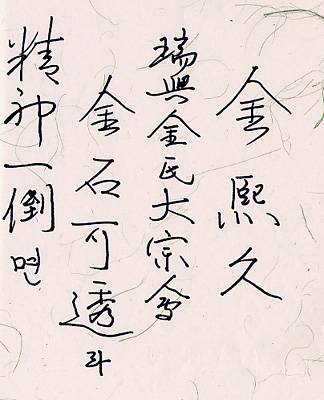 精神一倒면
金石可透라
瑞興金氏大宗會
金熙久